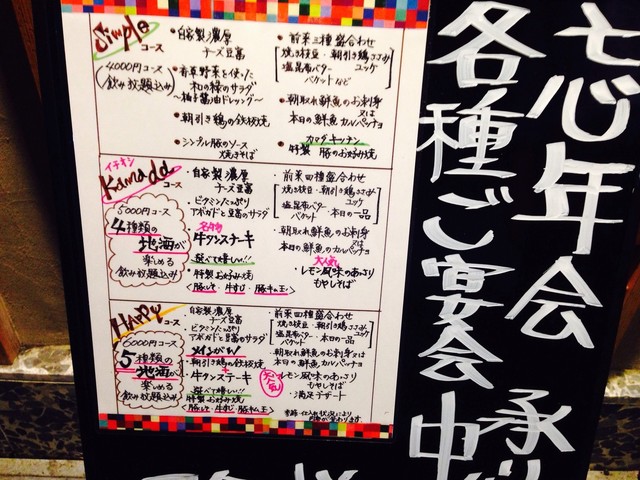 忘年会
各種ご宴会
承り
中
Simple コース
4000円コース
(飲み放題込み)
・自家製濃厚
チーズ豆富
・春草野菜を使った
和の緑のサラダ
～柚子醤油ドレッシング～
・朝引き鶏の鉄板焼
・シンプル豚のソース
焼きそば
・前菜三種盛合わせ
焼き枝豆・朝引き鶏ささみ
ユッケ
塩昆布バター
バケットなど
・朝取れ鮮魚のお刺身
又は
本日の鮮魚カルパッチョ
・カマダキッチン
特製 豚のお好み焼
イチオシ
Kamada コース
5000円コース
4種類の
地酒が
楽しめる
飲み放題込み
・自家製濃厚
チーズ豆富
・ビタミンたっぷり
アボガドと豆富のサラダ
名物
牛タンステーキ
・選べて嬉しい!!
・特製お好み焼
<豚しそ・牛すじ・豚キムチ玉>
・前菜四種盛合わせ
焼き枝豆・朝引き鶏ささみ
ユッケ
塩昆布バター
バケット
・本日の一品
・朝取れ鮮魚のお刺身
又は
本日の鮮魚のカルパッチョ
大人気
・レモン風味のあさり
もやしそば
HAPPY コース
6000円コース
5種類の
地酒が
楽しめる
飲み放題込み
・自家製濃厚
チーズ豆富
・ビタミンたっぷり
アボガドと豆富のサラダ
メインが
・朝引き鶏の鉄板焼
・牛タンステーキ
選べて嬉しい!!
特製お好み焼
<豚しそ・牛すじ・豚キムチ玉>
・前菜四種盛合わせ
焼き枝豆・朝引き鶏ささみ
ユッケ
塩昆布バター・本日の一品
バケット
・朝取れ鮮魚のお刺身又は
本日の鮮魚カルパッチョ
大人気
レモン風味のあさり
もやしそば
・満足デザート
季節・仕入れ状況により
内容が変わります